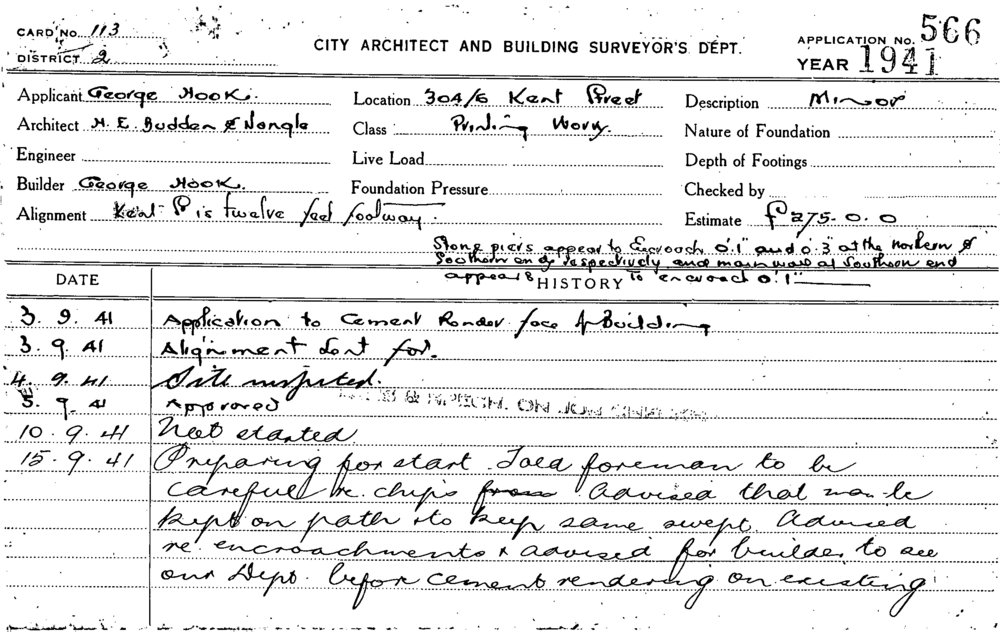 CARD No. 113
DISTRICT 2
CITY ARCHITECT AND BUILDING SURVEYOR'S DEPT.
APPLICATION No. 566
YEAR 1941
Applicant George Hook. Location 304/6 Kent Street Description Minor
Architect H. E. Budden & Nangle Class Printing Works. Nature of Foundation
Engineer Live Load Depth of Footings
Builder George Hook. Foundation Pressure Checked by
Alignment Kent St is twelve feet footway. Estimate £275-0.0
Stone piers appear to Encroach 0'.1" and 0'.3" at the Northern &
Southern ends respectively and main wall at Southern end
appears to encroach 0'.1"
DATE HISTORY
3. 9. 41 Application to Cement Render face of Building
3. 9. 41 Alignment sent for.
4. 9. 41 Site inspected.
5. 9. 41 Approved
ON JOB
10. 9. 41 Not started
15. 9. 41 Preparing for start. Told foreman to be
careful re. chips from Advised that man be
kept on path & to keep same swept. Advised
re. encroachments & advised for builder to see
our Dept. before cement rendering on existing